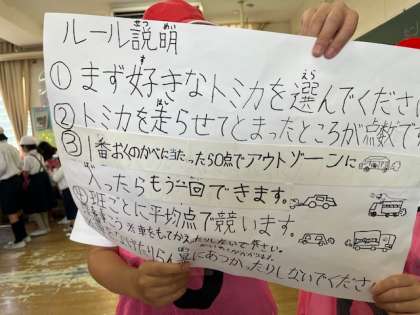 ルール説明
①まず好きなトミカを選んでくださ
②トミカを走らせてとまったところが点数です
③1番おくのかべに当たったら50点でアウトゾーンに
入ったらもう一回できます。
④班ごとに平均点で競います。
※車をもてかえったりしないで下さい。